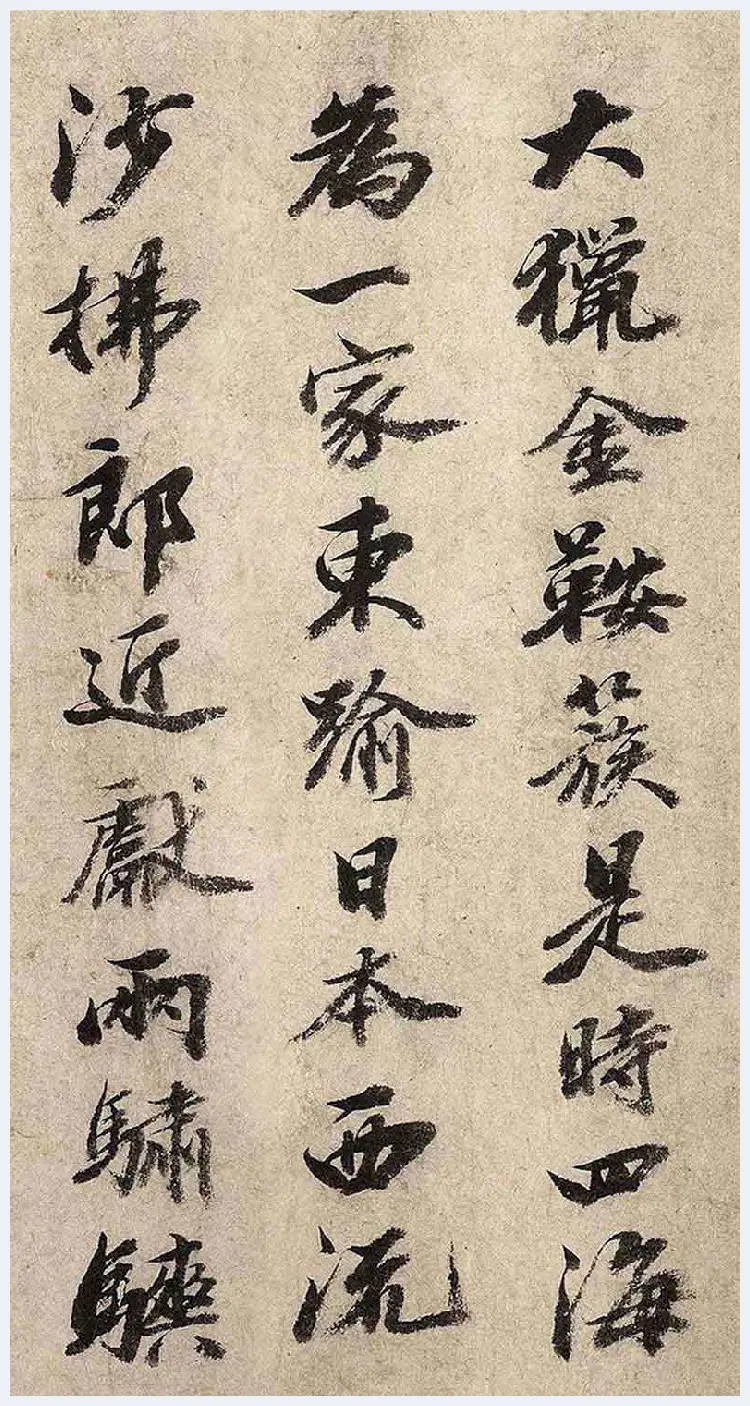 大獵金鞍簇是時四海
為一家東踰日本西流
沙拂郎近獻兩驌驦